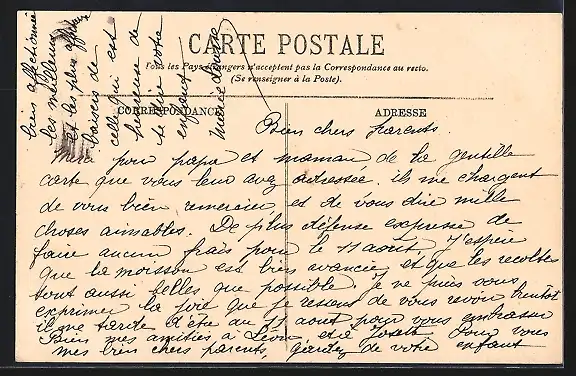 CARTE POSTALE
Tous les Pays étrangers n'acceptent pas la Correspondance au recto.
(Se renseigner à la Poste).
CORRESPONDANCE
ADRESSE
Bien chers parents.
Merci pour papa et maman de la gentille
carte que vous leur avez adressée. ils me chargent
de vous bien remercier, et de vous dire mille
choses aimables. De plus défense expresse de
faire aucun frais pour le 11 août. J'espère
que la moisson est bien avancée, et que les récoltes
sont aussi belles que possible. Je ne puis vous
exprimer la joie que je ressens de vous revoir bientôt
il me tarde d'être au 11 août pour vous embrasser
Bien mes amitiés à Léon, et à Joseph. Pour vous
mes bien chers parents, gardez de votre enfant
bien affectionnée
les meilleurs
et les plus affectueux
baisers de
celle qui est
heureuse de
se dire votre
enfant
Marie Louise